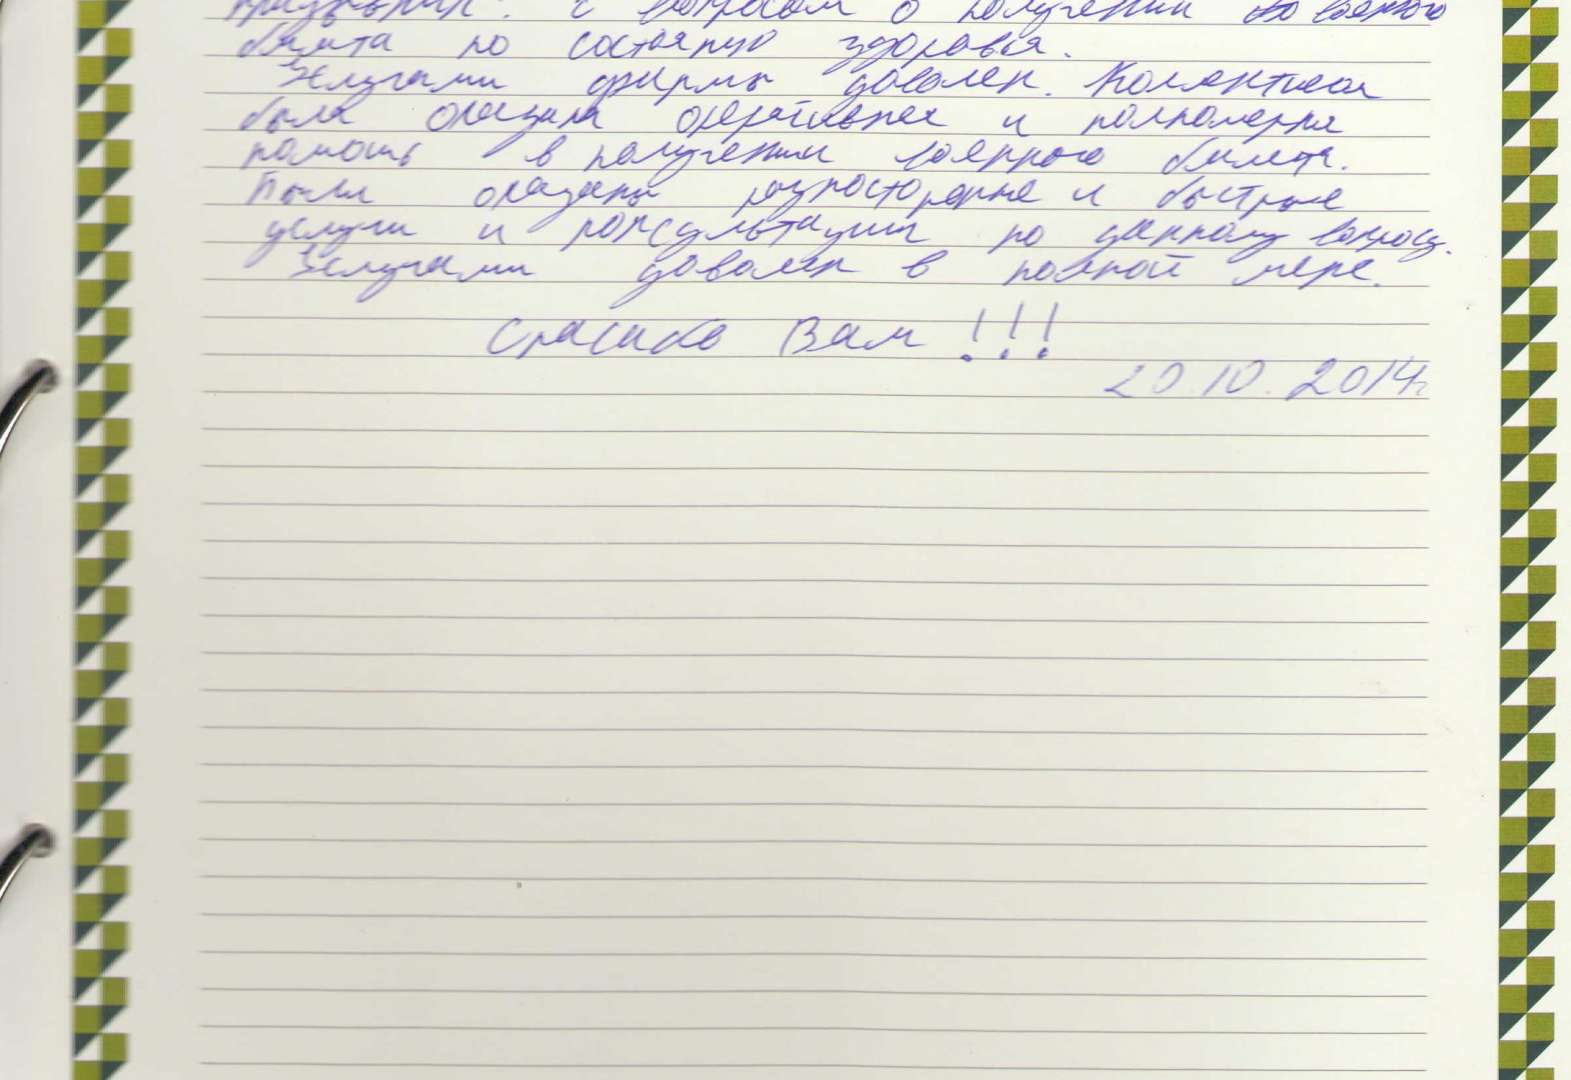 призывник. с вопросом о получении во военного
билета по состоянию здоровья.
Услугами фирмы доволен. Коллективом
была оказана оперативная и полномерная
помощь в получении военного билета.
Были оказаны разносторонние и быстрые
услуги и консультации по данному вопросу.
Услугами доволен в полной мере.
Спасибо Вам !!!
20.10.2014г